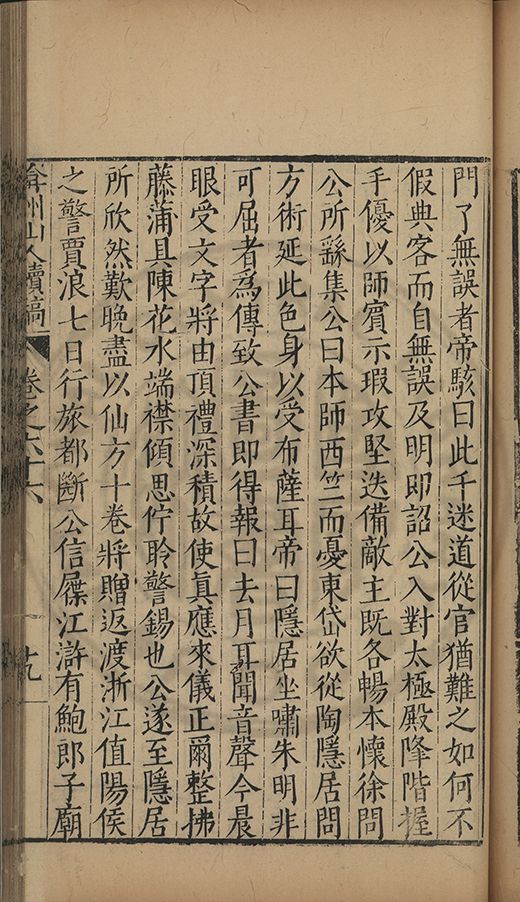 門了無誤者帝駭曰此千迷道從官猶難之如何不
假典客而自無誤及明即詔公入對太極殿降階握
手優以師賓示瑕攻堅迭備敵主既各暢本懷徐問
公所繇集公曰本師西竺而憂東岱欲從陶隱居問
方術延此色身以受布薩耳帝曰隱居坐嘯朱明非
可屈者爲傳致公書即得報曰去月耳聞音聲今晨
眼受文字將由頂禮深積故使真應來儀正爾整拂
藤蒲具陳花水端襟傾思佇聆警錫也公遂至隱居
所欣然歎晚盡以仙方十卷將贈返渡浙江值陽侯
之警賈浪七日行旅都斷公信屧江滸有鮑郎子廟
弇州山人續稿 卷之六十六 十九